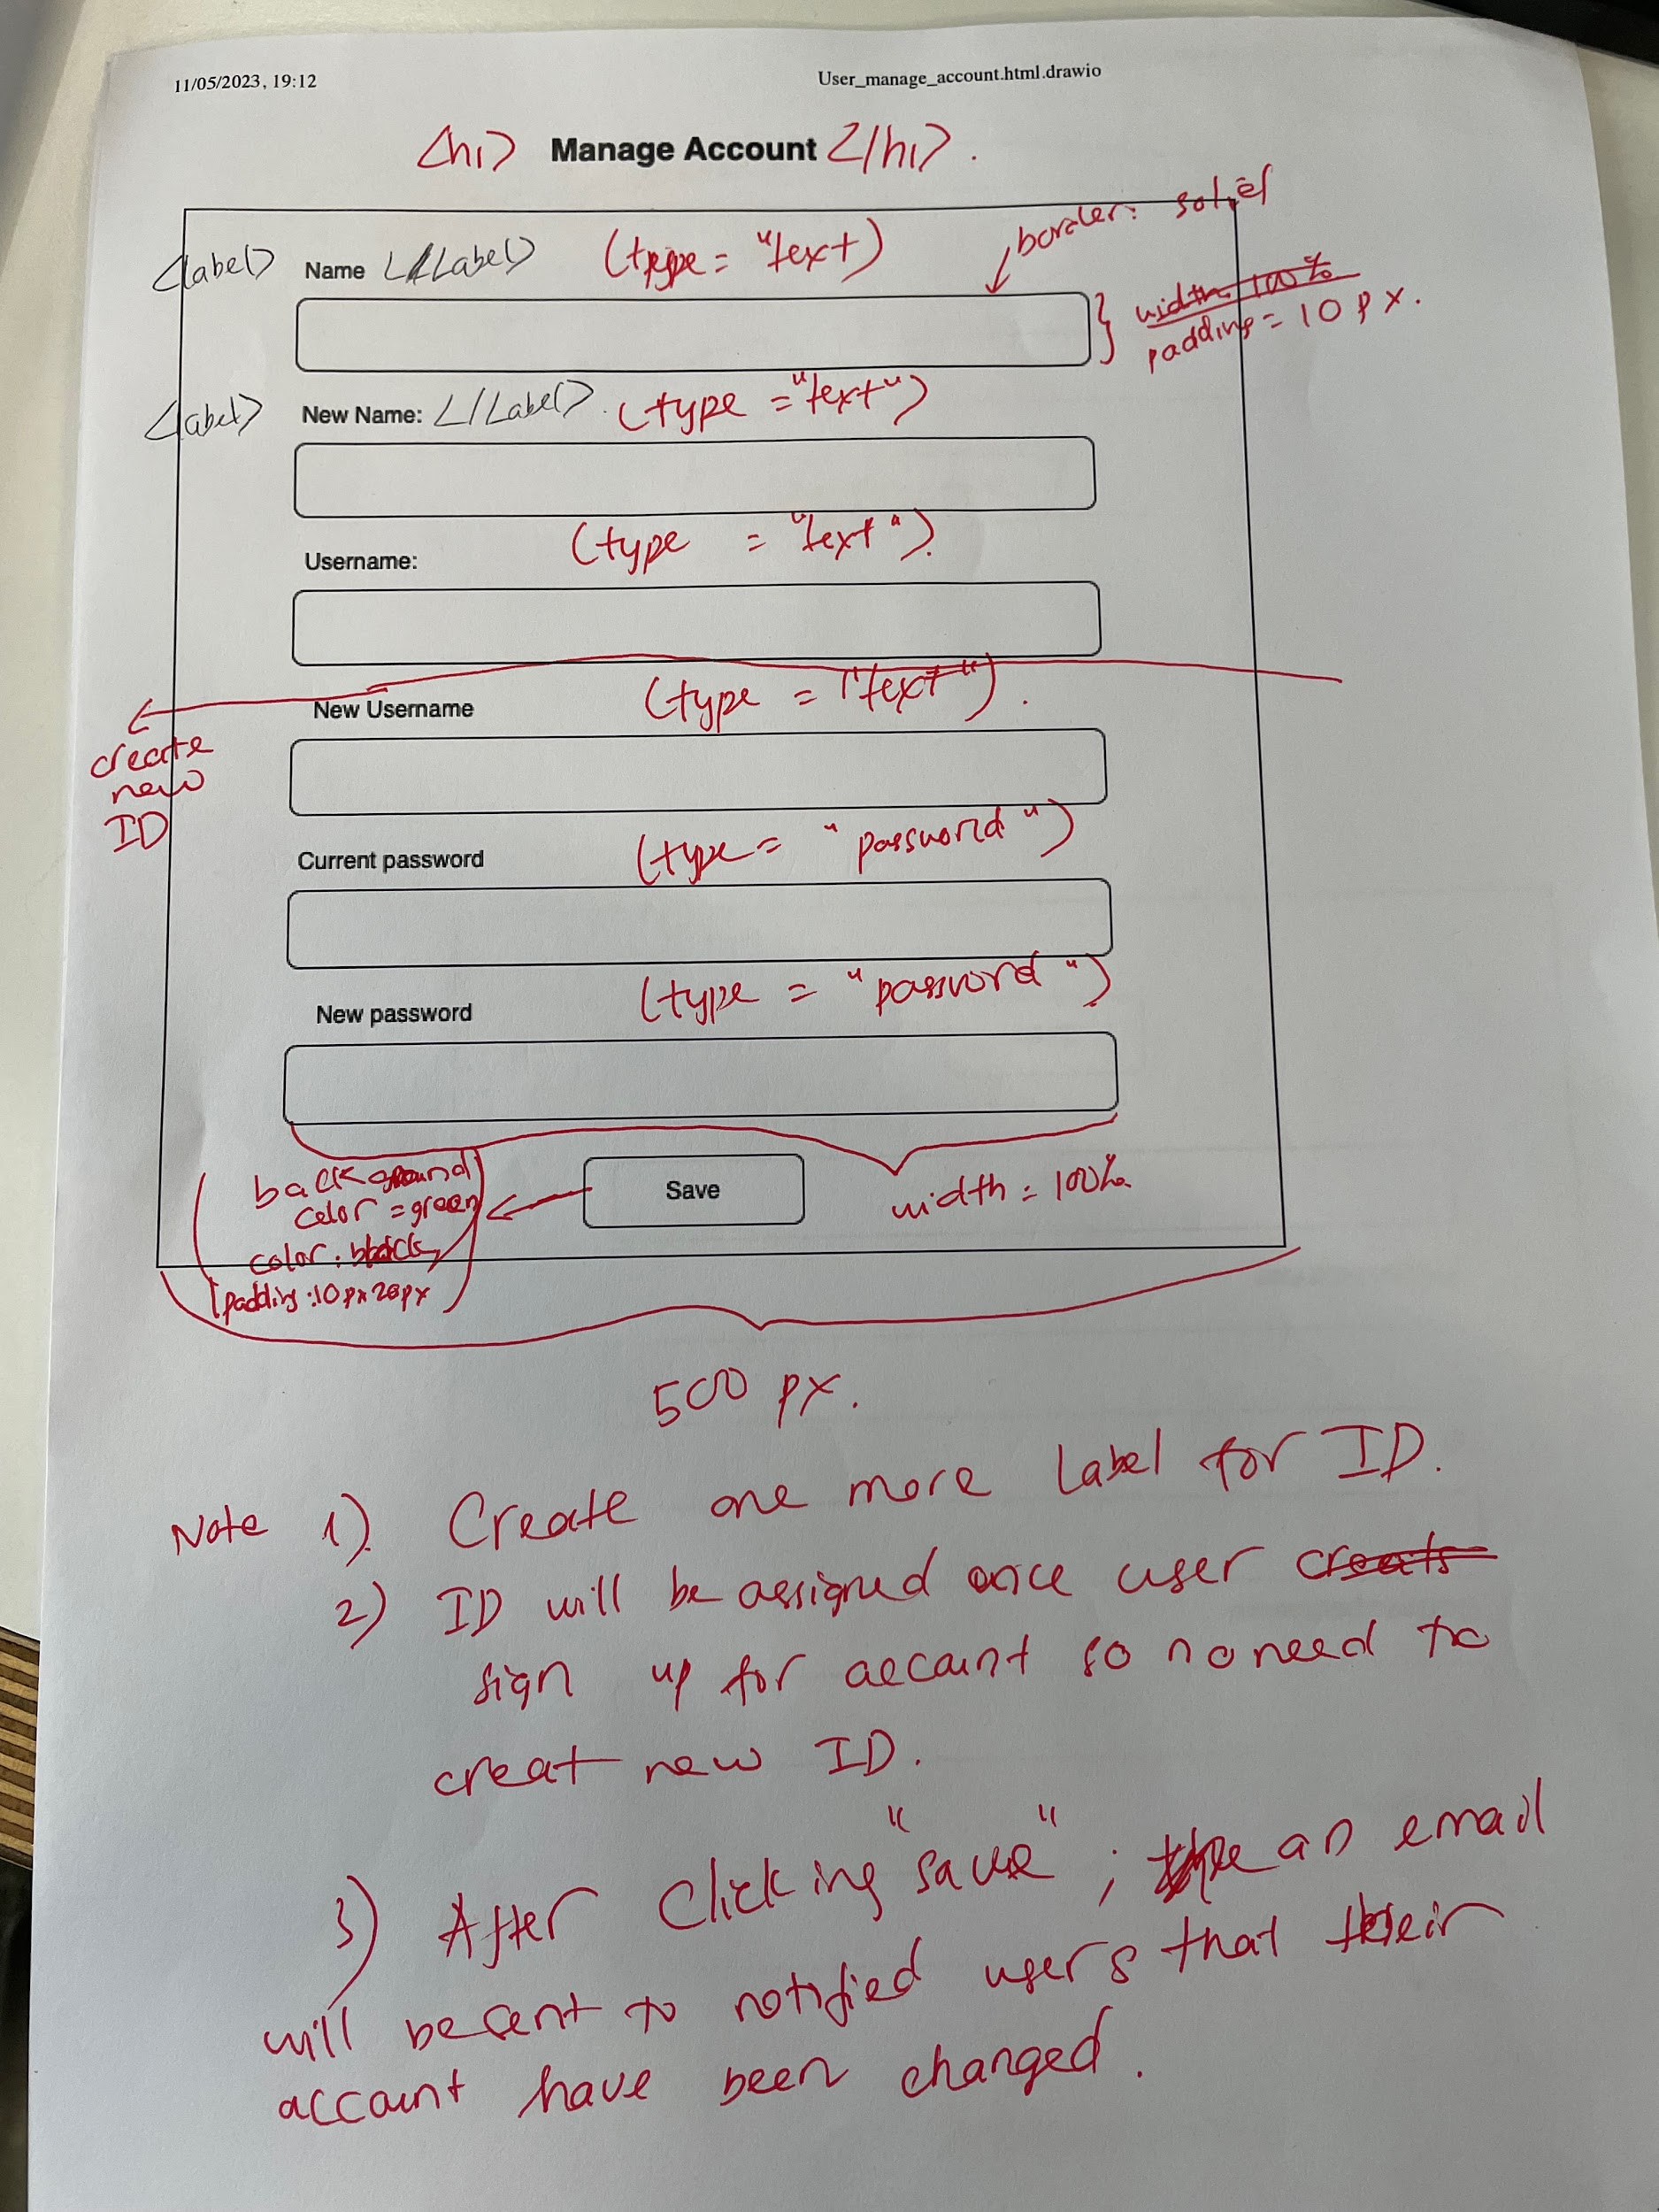 11/05/2023, 19:12 User_manage_account.html.drawio
<h1> Manage Account </h1>.
border: solid
<label> Name </Label> (type = "text)
width 100%
padding = 10 px.
<label> New Name: </Label>. (type = "text")
Username: (type = "text").
New Username (type = "text").
create
new
ID
Current password (type = "password")
New password (type = "password")
background
color = green
color: black
padding: 10px 20px
Save
width = 100%
500 px.
Note 1). Create one more Label for ID.
2) ID will be assigned once user creats
sign up for accaunt so no need to
creat new ID.
3) After Clicking "save"; the an email
will be sent to notified users that their
account have been changed.